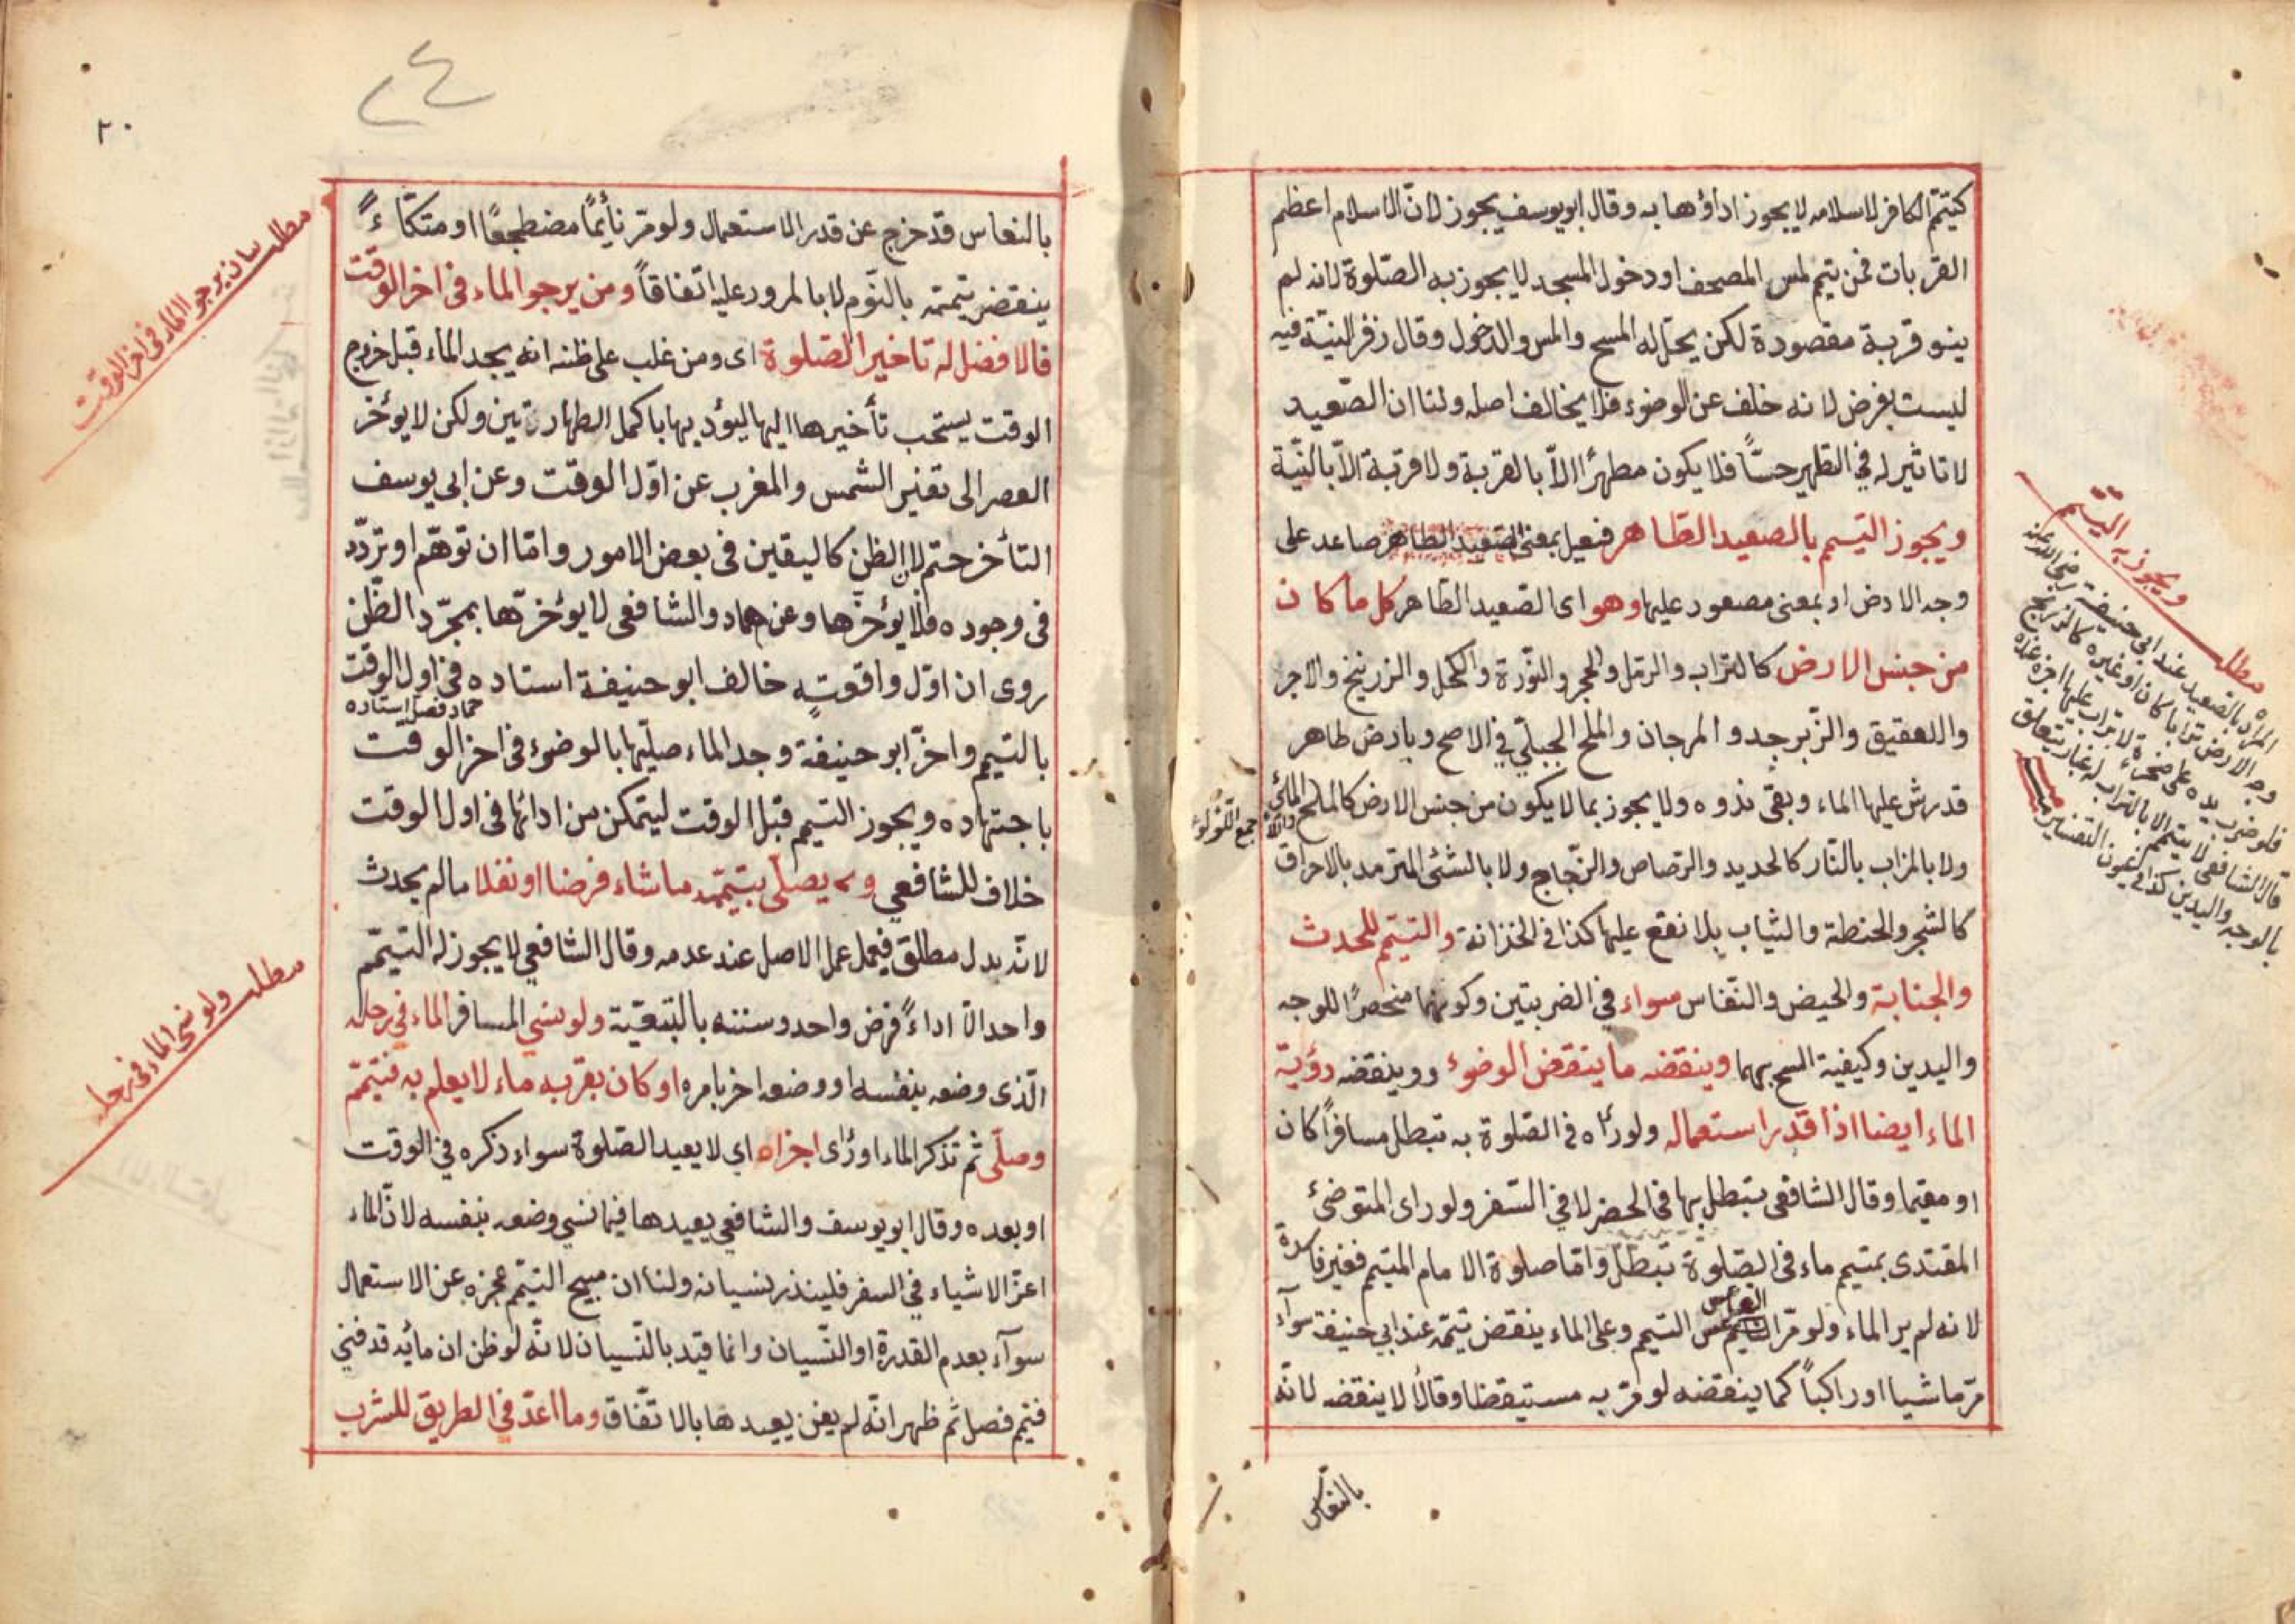 كتيمّم الكافر لاسلامه لا يجوز اداؤها به وقال ابو يوسف يجوز لانّ الاسلام اعظم
القربات فمن تيمم لمس المصحف او دخول المسجد لا يجوز به الصّلوة لانه لم
ينو قربة مقصودة لكن يحل له المسح والمس والدخول وقال زفر النيّة فيه
ليست بفرض لانه خلف عن الوضوء فلا يخالف اصله ولنا ان الصّعيد
لا تاثير له في التطهير حسّاً فلا يكون مطهرًا الاّ بالقربة ولا قربة الاّ بالنيّة
ويجوز التيمم بالصعيد الطاهر فعيل بمعنى الصعيد الطاهر صاعد على
وجه الارض او بمعنى مصعود عليها وهو اى الصعيد الطاهر كل ما كان
من جنس الارض كالتراب والرمل والحجر والنّورة والكحل والزرنيخ والاجر
واللعقيق والزّبرجد والمرجان والملح الجبليّ في الاصح وبارض طاهر
قد رش عليها الماء وبقى ندوه ولا يجوز بما لا يكون من جنس الارض كالملح المائي
ولا بالمزاب بالنّار كالحديد والرصاص والزّجاج ولا بالشئى المترمد بالاحراق
كالشجر والحنطة والثياب بلا نقع عليها كذا في الخزانة والتيمّم للحدث
والجنابة والحيض والنّفاس سواء في الضربتين وكونهما منحصرًا للوجه
واليدين وكيفية المسح بهما وينقضه ما ينقض الوضوء ووينقضه رؤية
الماء ايضا اذا قدر استعماله ولو رأه في الصّلوة به تبطل مسافرًا كان
او مقيما وقال الشافعى تبطل بها في الحضر لا في السّفر ولو راى المتوضئ
المقتدى بمتيمم ماء في الصّلوة تبطل وامّا صلوة الامام المتيمم فغير فاسدة
لانه لم ير الماء ولو مرّ الناعس التيمم وعلى الماء ينقض تيمّمه عند ابي حنيفة سوآء
مرّ ماشيا او راكباً كما ينقضه لو مرّ به مستيقظا وقالا لا ينقضه لانّه
بالنعاس
جمع اللؤلؤ
مطلب ويجوز به التيمم
المراد بالصعيد عند ابي حنيفة رضى الله عنه
وجه الارض ترابا كان او غيره
فلو ضرب يده على صخرة لا تراب عليها اجزه
قال الشافعى لا يتيمم الا بالتراب له غبار يتعلق
بالوجه واليدين كذا في عيون التفسير
٢٠
٢٤
بالنعاس قد خرج عن قدر الاستعمال ولو مرّ نأئمًا مضطجعًا او متكّاءً
ينقض تيممّه بالنّوم لا بالمرور عليه اتّفاقاً ومن يرجو الماء في اخر الوقت
فالافضل له تاخير الصّلوة اى ومن غلب على ظنه انه يجد الماء قبل خروج
الوقت يستحب تأخيرها اليها ليؤديها باكمل الطهارتين ولكن لا يؤخر
العصر الى تغيّر الشمس والمغرب عن اوّل الوقت وعن ابي يوسف
التأخر حتم لان الظن كاليقين في بعض الامور وامّا ان توهّم او تردّد
في وجوده فلا يؤخرها وعن حماد والشافعى لا يؤخرّها بمجرّد الظّن
روى ان اوّل واقعة خالف ابو حنيفة استاده في اول الوقت
حماد فصلى استاده
بالتيمم واخرّ ابو حنيفة وجد الماء صليها بالوضوء في اخر الوقت
باجتهاده ويجوز التيمم قبل الوقت ليتمكن من ادائها في اول الوقت
خلاف للشافعي ويصلّى بتيمّمه ما شاء فرضا او نفلا ما لم يحدث
لانّه بدل مطلق فيعمل عمل الاصل عند عدمه وقال الشافعي لا يجوز له التيمّم
واحد الا اداءً فرض واحد وسننه بالتبعيّة ولو نسي المسافر الماء في رحله
الّذى وضعه بنفسه او وضعه اخر بامره او كان بقربه ماء لا يعلم به فتيمّم
وصلّى ثم تذكر الماء او رأى اجزاه اي لا يعيد الصّلوة سواء ذكره في الوقت
او بعده وقال ابو يوسف والشافعي يعيدها فيما نسي وضعه بنفسه لانّ الماء
اعزّ الاشياء في السفر فليندر نسيانه ولنا ان مبيح التيمّم عجزه عن الاستعمال
سوآء بعدم القدرة او النّسيان وانما قيّد بالنّسيان لانّه لو ظن ان مائه قد فني
فتيمم فصلى ثم ظهر انّه لم يفن يعيدها بالاتّفاق وما اعدّ في الطريق للشرب
مطلب بيان يرجو الماء في اخر الوقت
مطلب ولو نسي الماء في رحله